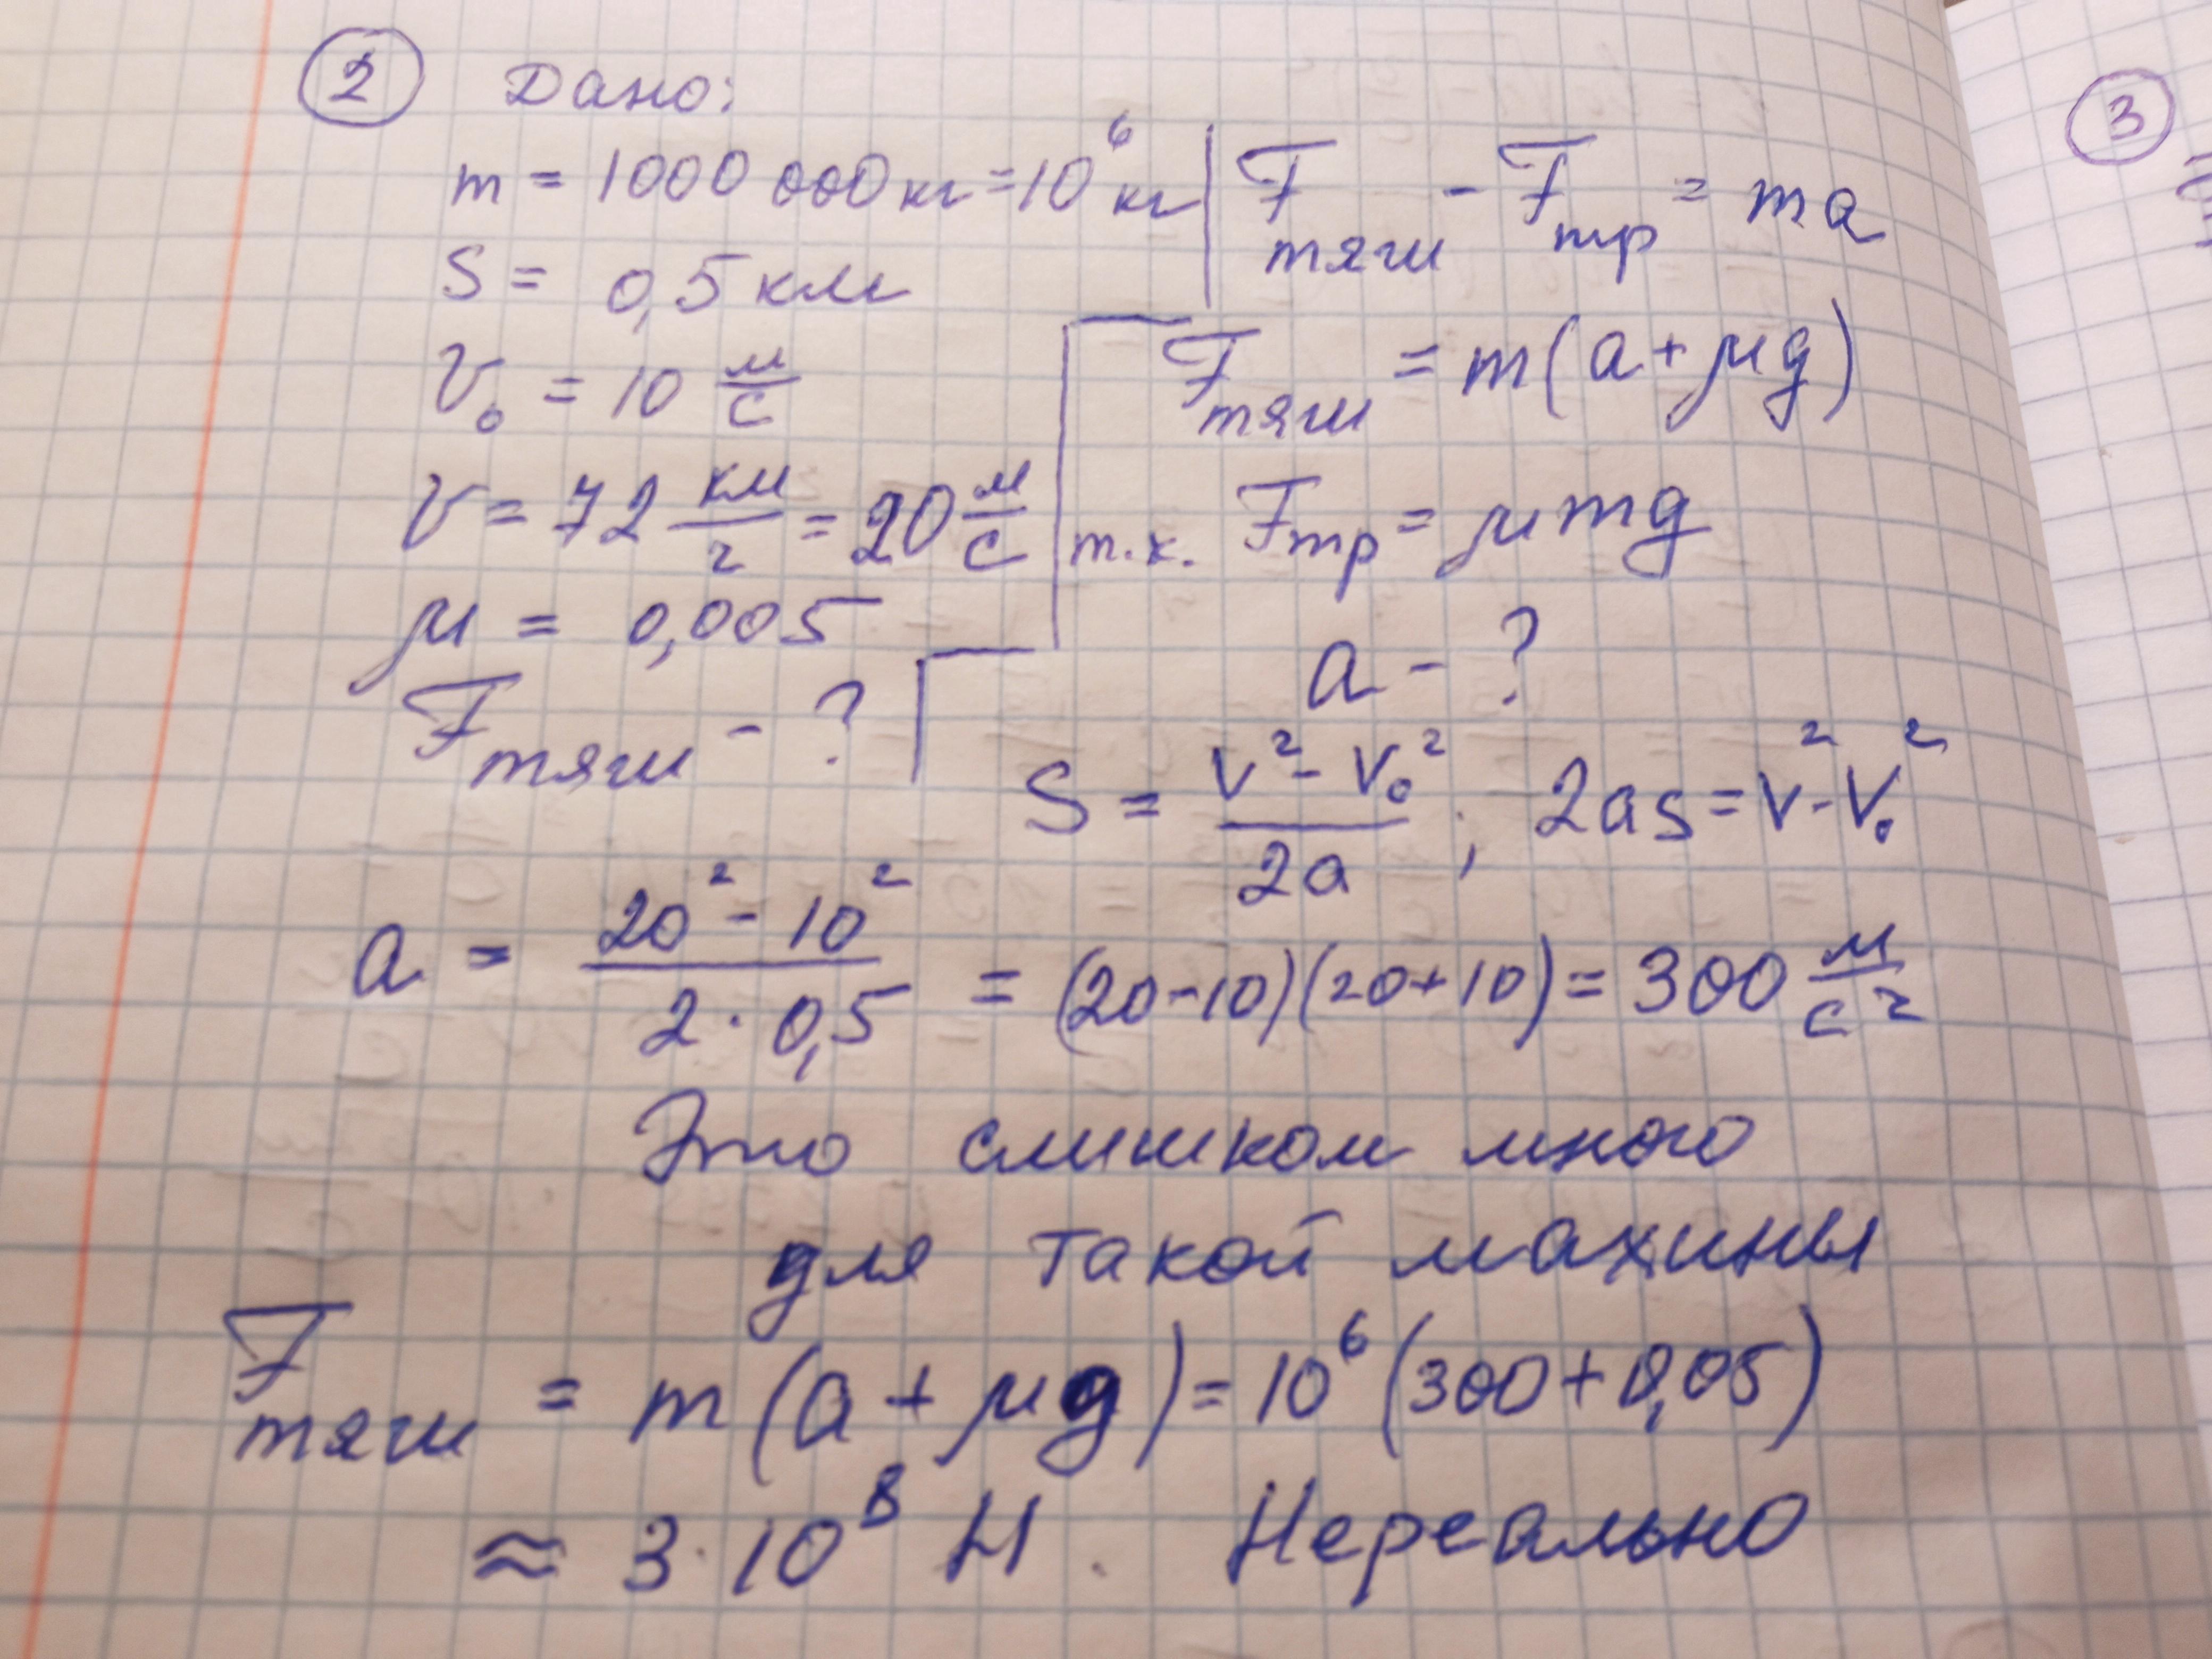 2 Дано:
m = 1000 000 кг = 10⁶ кг
S = 0,5 км
V₀ = 10 м/с
V = 72 км/г = 20 м/с
μ = 0,005
Fтяги - ?
Fтяги - Fтр = ma
Fтяги = m(a + μg)
т.к. Fтр = μmg
a - ?
S = (V² - V₀²)/2a ; 2as = V² - V₀²
a = (20² - 10²)/(2 · 0,5) = (20-10)(20+10) = 300 м/с²
Это слишком много
для такой махины
Fтяги = m(a + μg) = 10⁶(300 + 0,05)
≈ 3 · 10⁸ Н. Нереально
3